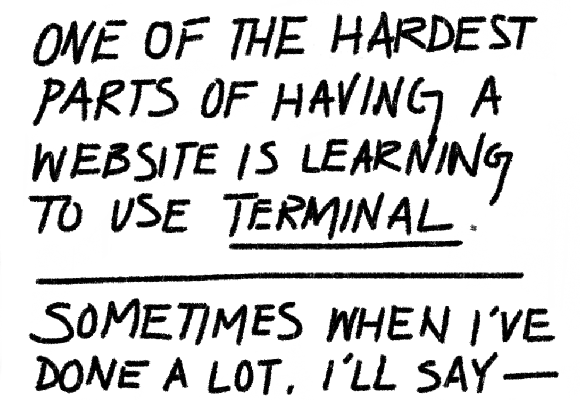 ONE OF THE HARDEST
PARTS OF HAVING A
WEBSITE IS LEARNING
TO USE TERMINAL.
SOMETIMES WHEN I'VE
DONE A LOT, I'LL SAY—